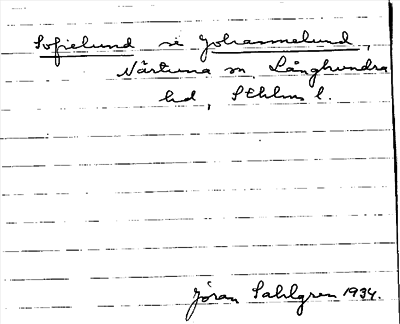 Sofielund se Johannelund,
Närtuna sn, Långhundra
hd, Sthlms l.
Jöran Sahlgren 1934.